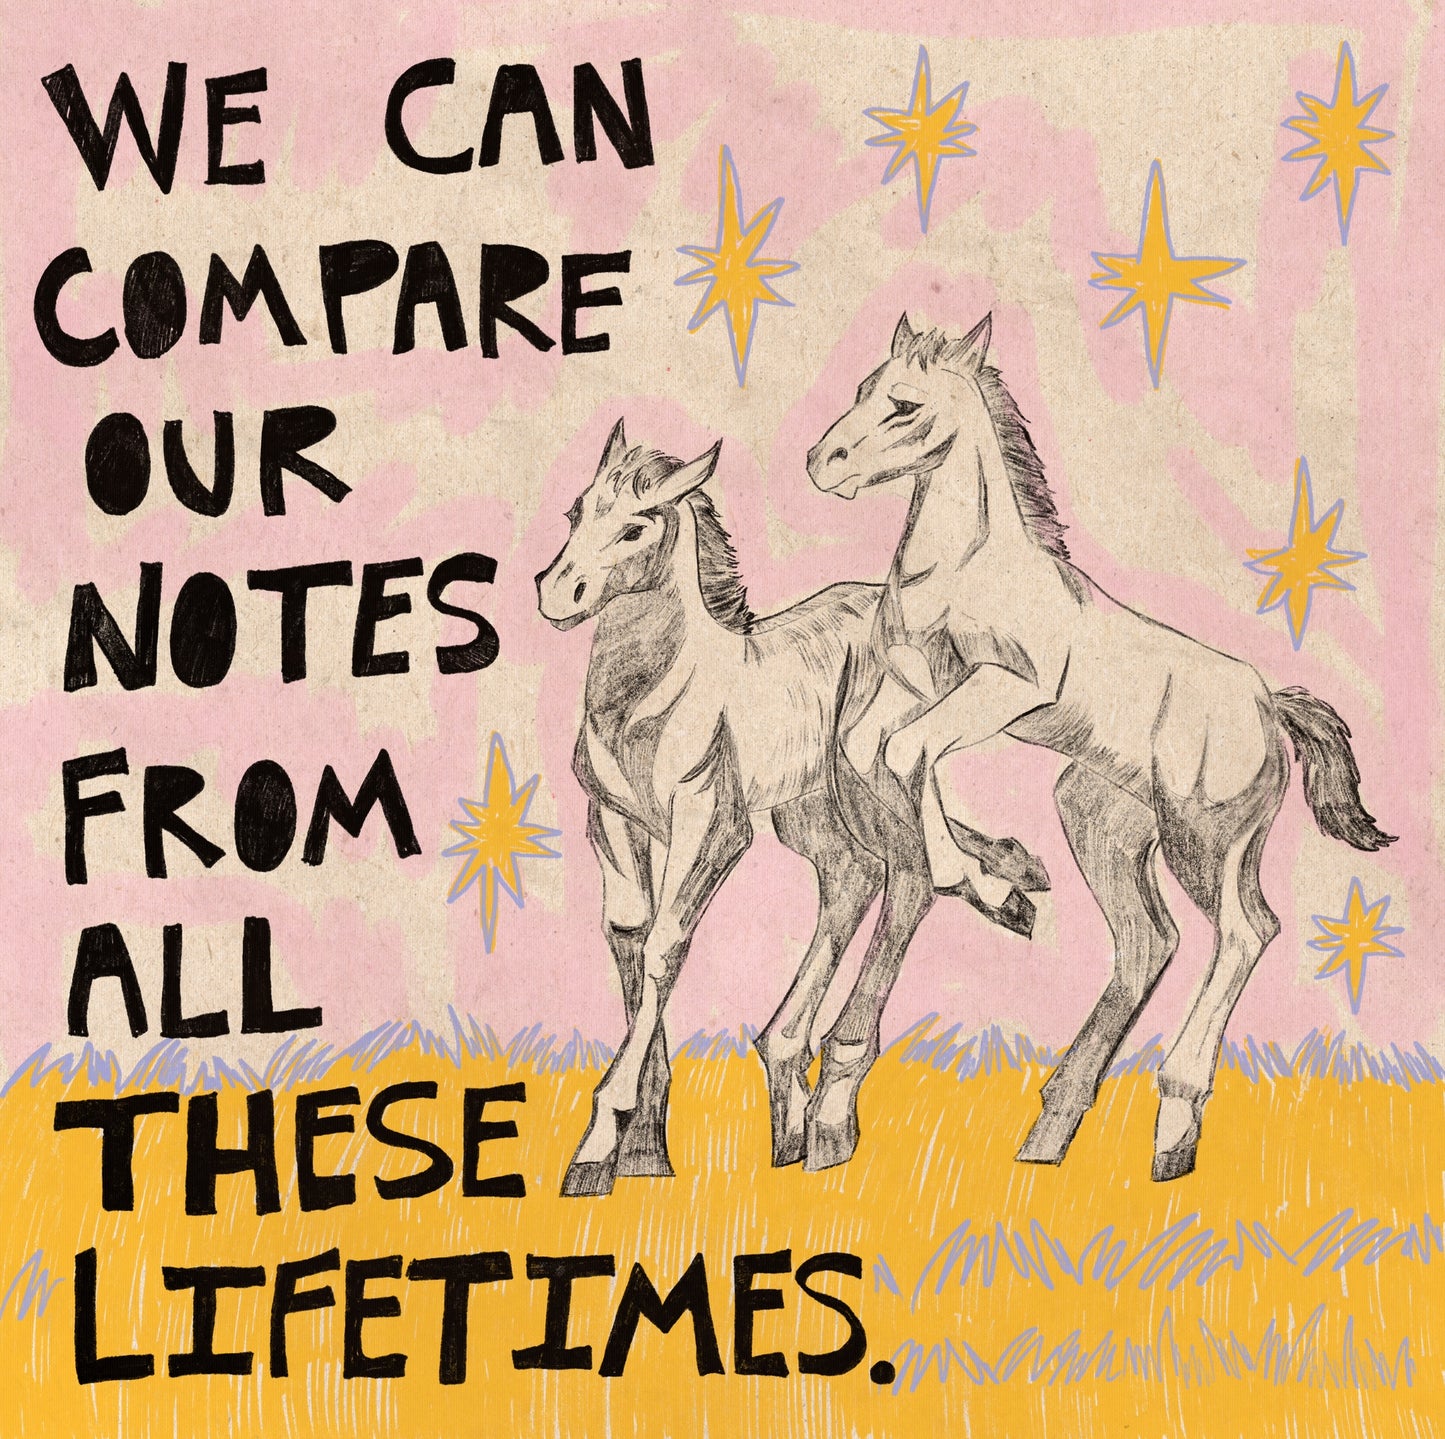 WE CAN
COMPARE
OUR
NOTES
FROM
ALL
THESE
LIFETIMES.